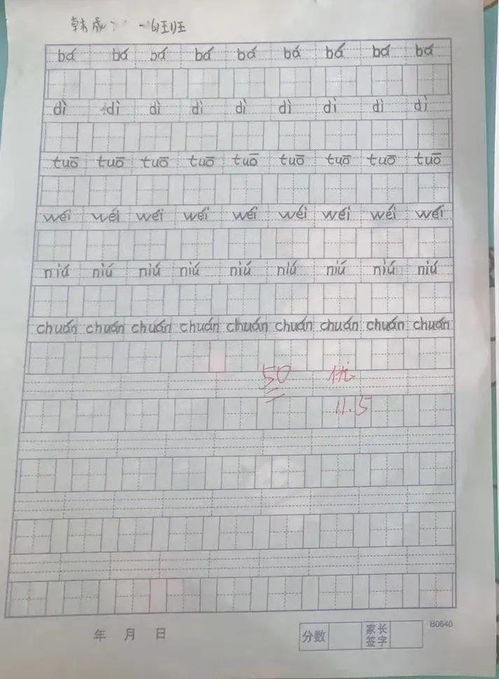 韩成 一8班
bá bá bá bá bá bá bá bá bá
dì dì dì dì dì dì dì dì dì
tuō tuō tuō tuō tuō tuō tuō tuō tuō
wéi wéi wéi wéi wéi wéi wéi wéi wéi
niú niú niú niú niú niú niú niú niú
chuán chuán chuán chuán chuán chuán chuán chuán chuán
50 优
11.5
年 月 日 分数 家长签字 B0640